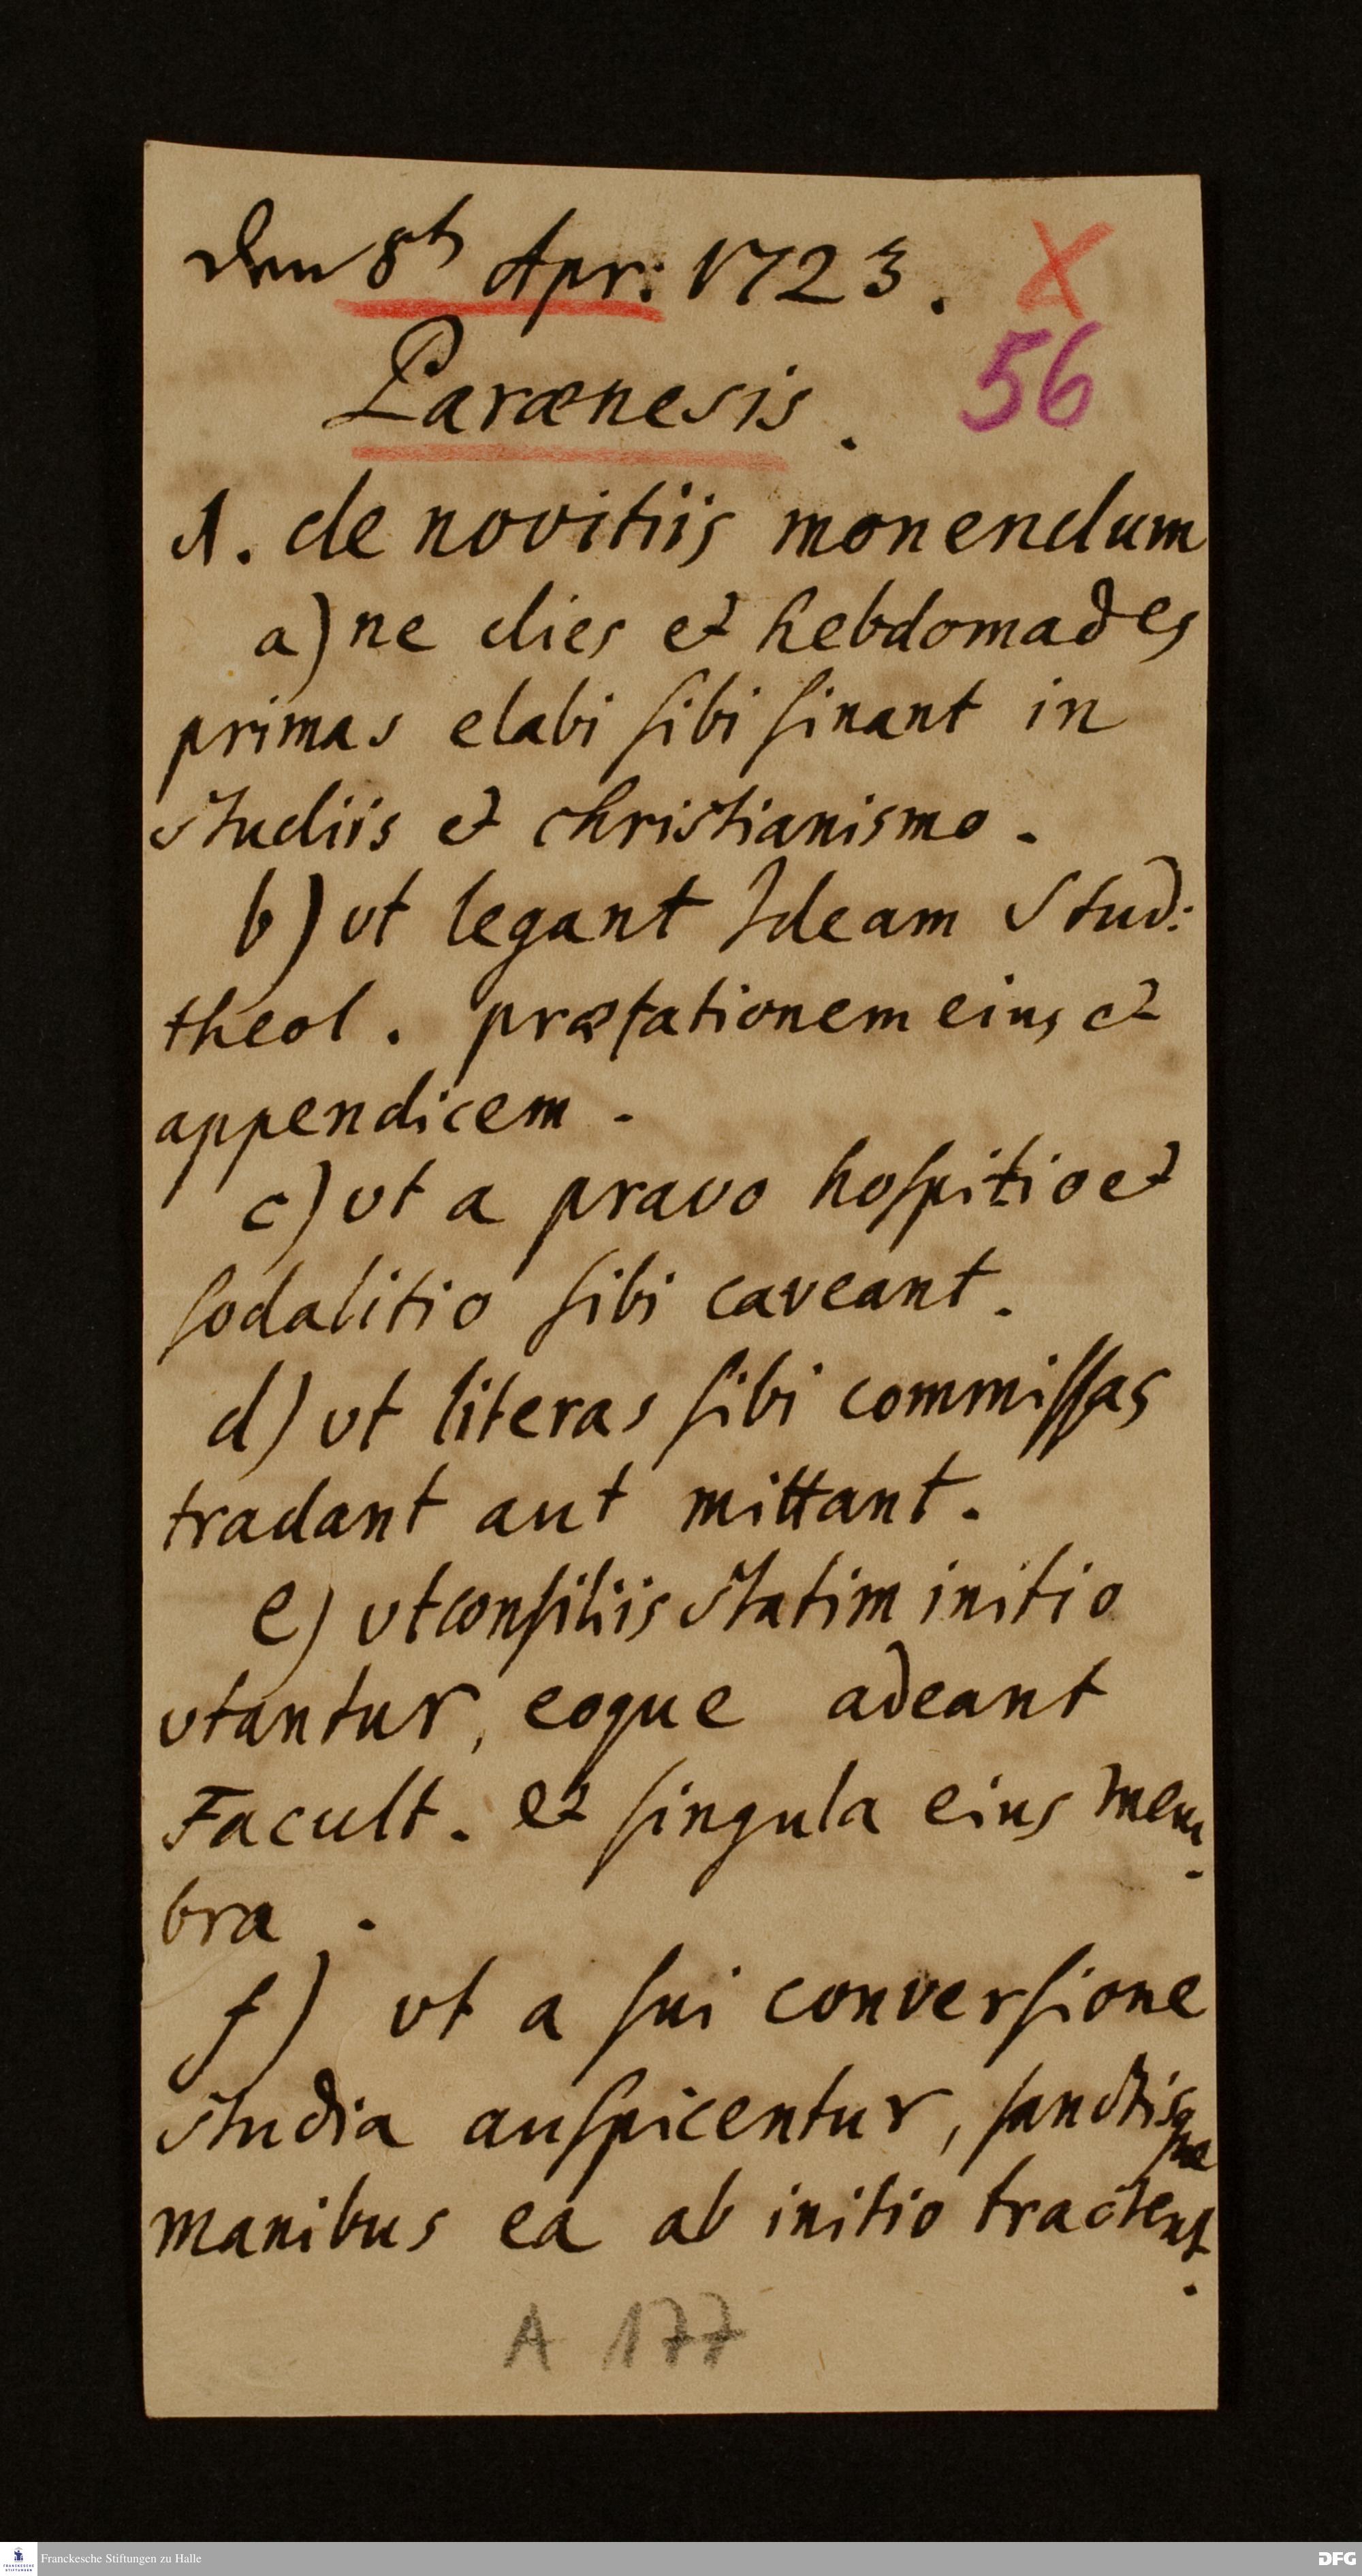 den 8th Apr: 1723. X
Parænesis. 56
1. de novitiis monendum
a) ne dies et hebdomades
primas elabi sibi sinant in
studiis et christianismo.
b) vt legant Ideam Stud:
theol. præfationem eius et
appendicem.
c) vt a pravo hospitio et
sodalitio sibi caveant.
d) vt literas sibi commissas
tradant aut mittant.
e) vt consiliis statim initio
vtantur, eoque adeant
Facult. et singula eius mem-
bra.
f) vt a sui conversione
studia auspicentur, sanctisque
manibus ea ab initio tractent.
A 177
FRANCKESCHE STIFTUNGEN
Franckesche Stiftungen zu Halle
DFG